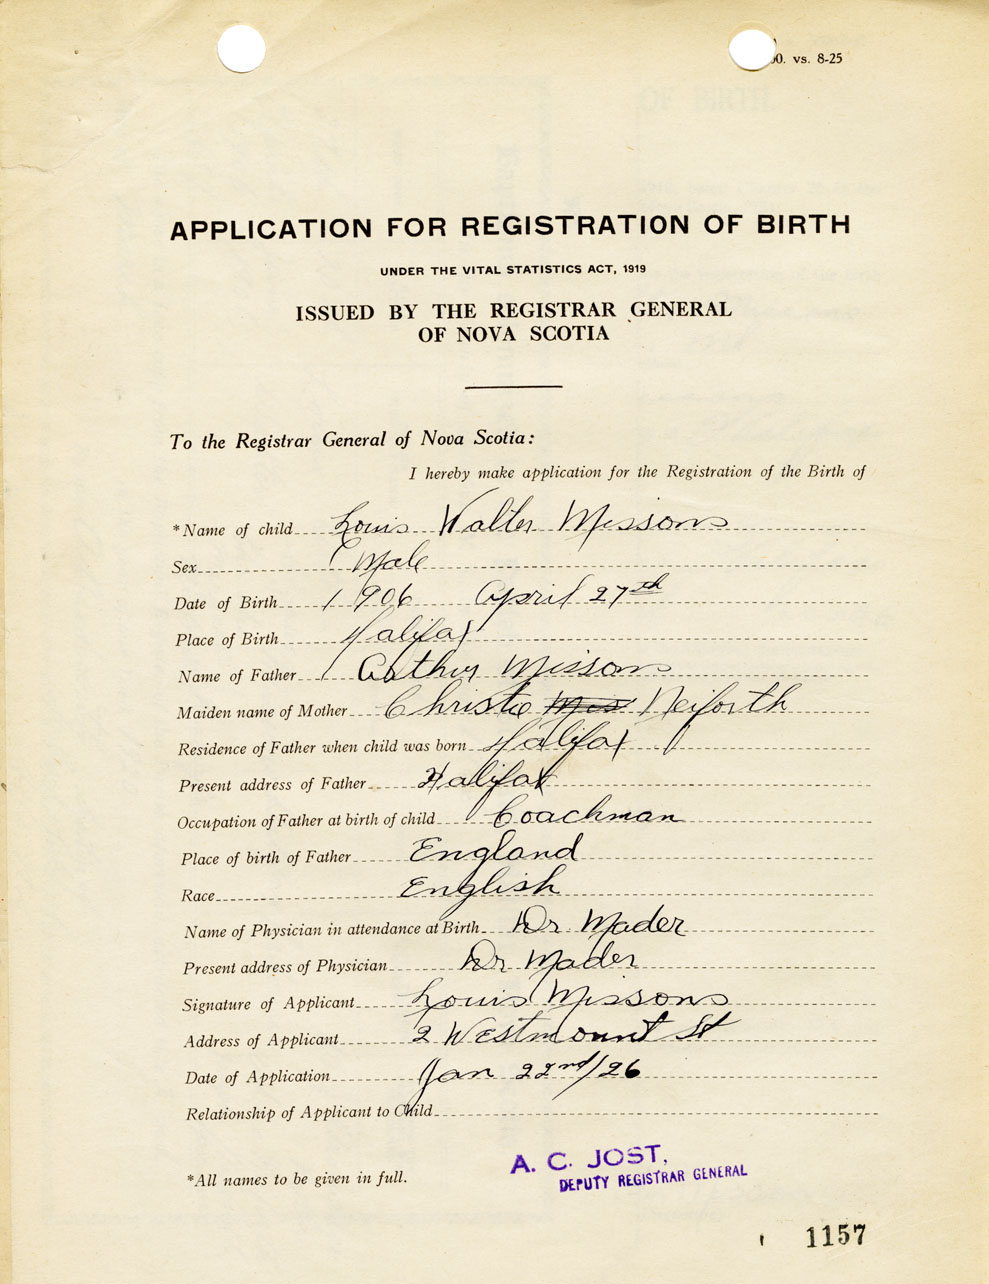 00. vs. 8-25
APPLICATION FOR REGISTRATION OF BIRTH
UNDER THE VITAL STATISTICS ACT, 1919
ISSUED BY THE REGISTRAR GENERAL
OF NOVA SCOTIA
To the Registrar General of Nova Scotia:
I hereby make application for the Registration of the Birth of
*Name of child Louis Walter Missons
Sex Male
Date of Birth 1906 April 27th
Place of Birth Halifax
Name of Father Arthur Missons
Maiden name of Mother Christie Neiforth
Residence of Father when child was born Halifax
Present address of Father Halifax
Occupation of Father at birth of child Coachman
Place of birth of Father England
Race English
Name of Physician in attendance at Birth Dr Mader
Present address of Physician Dr Mader
Signature of Applicant Louis Missons
Address of Applicant 2 Westmount St
Date of Application Jan 22nd/26
Relationship of Applicant to Child
*All names to be given in full.
A. C. JOST,
DEPUTY REGISTRAR GENERAL
1157